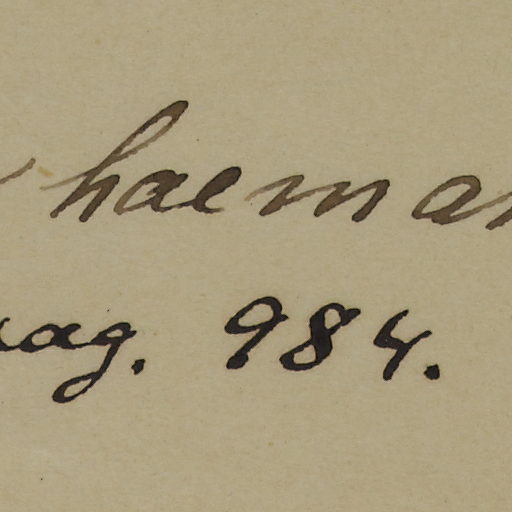 haeman
ag. 984.